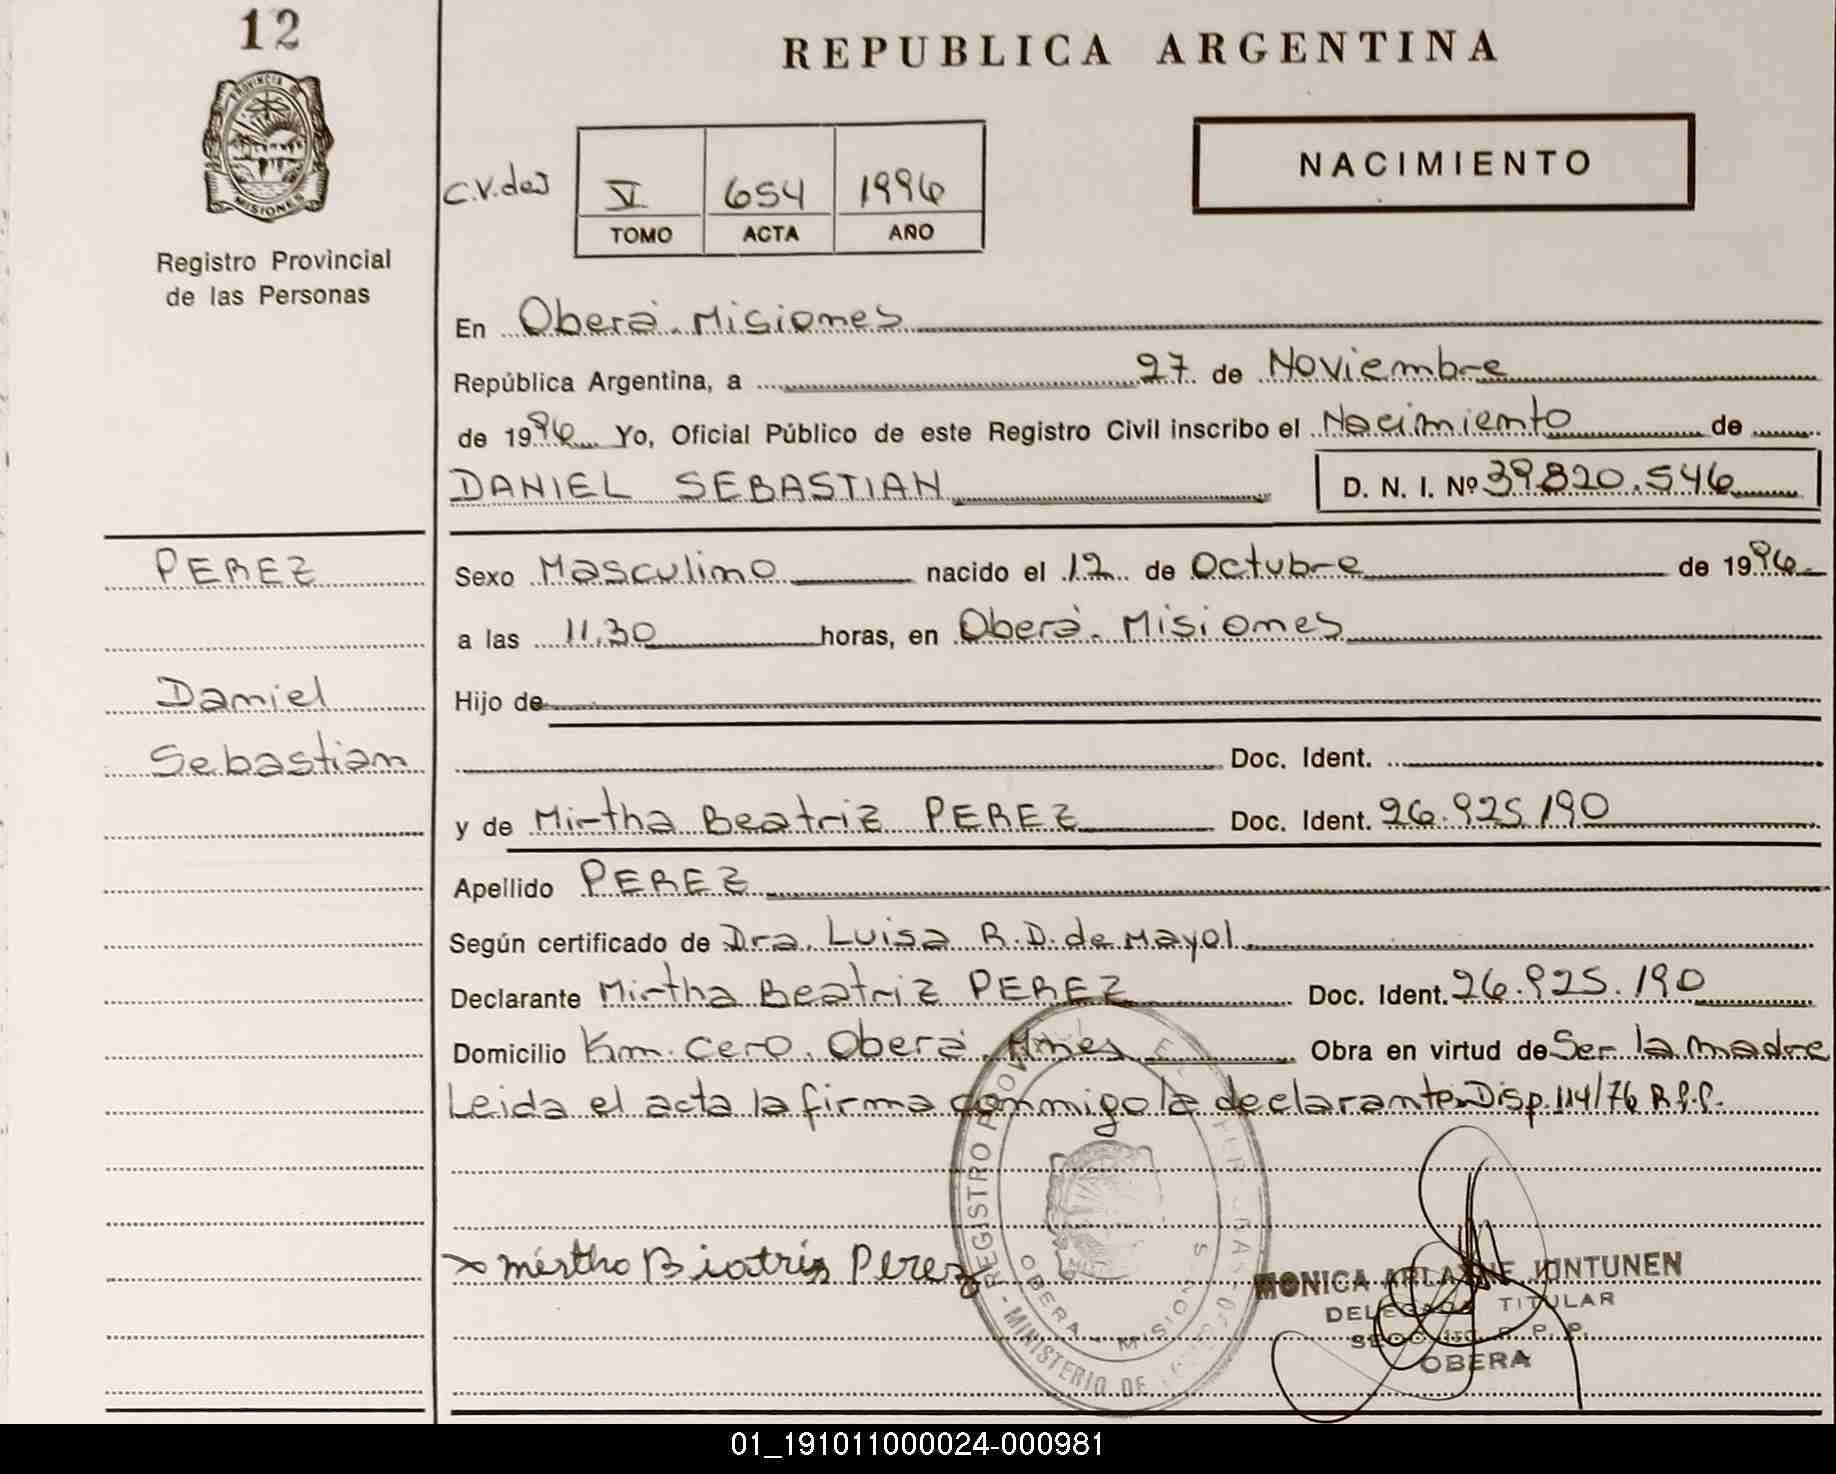 12
REPUBLICA ARGENTINA
PROVINCIA DE
MISIONES
Registro Provincial
de las Personas
NACIMIENTO
C.V.de J
V 654 1996
TOMO ACTA AÑO
En Oberá. Misiones
República Argentina, a 27 de Noviembre
de 1996 Yo, Oficial Público de este Registro Civil inscribo el Nacimiento de
DANIEL SEBASTIAN D. N. I. Nº 39.820.546
PEREZ
Daniel
Sebastian
Sexo Masculino nacido el 12 de Octubre de 1996
a las 11.30 horas, en Oberá. Misiones
Hijo de
Doc. Ident.
y de Mirtha Beatriz PEREZ Doc. Ident. 26.925.190
Apellido PEREZ
Según certificado de Dra. Luisa R.D. de Mayol
Declarante Mirtha Beatriz PEREZ Doc. Ident. 26.925.190
Domicilio Km. Cero. Oberá. Mnes Obra en virtud de Ser la madre
Leida el acta la firma conmigo la declarante. Disp. 114/76 R.P.P.
x mirtho Biatris Perez
REGISTRO PROV
MINISTERIO DE
OBERA - MISIONES
MONICA ARLAINE JONTUNEN
DELEGADA TITULAR
R. P. P.
OBERA
01_191011000024-000981